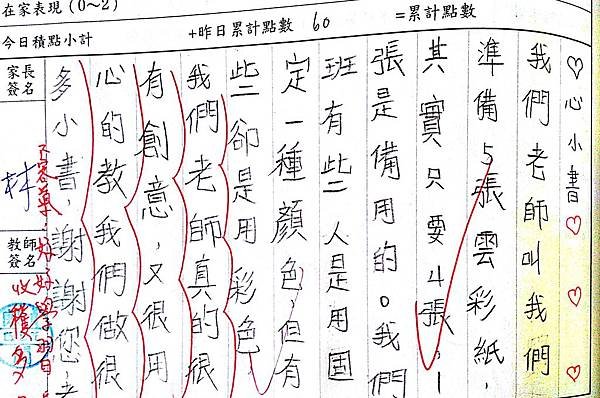 在家表現(0～2)
今日積點小計 +昨日累計點數 60 =累計點數
♡心小書♡♡♡
我們老師叫我們
準備5張雲彩紙，
其實只要4張，1
張是備用的。我們
班有些人是用固
定一種顏色，但有
些卻是用彩色，
我們老師真的很
有創意，又很用
心的教我們做很
多小書，謝謝您，老
家長簽名
林
教師簽名
不客氣！好好學習
收穫多